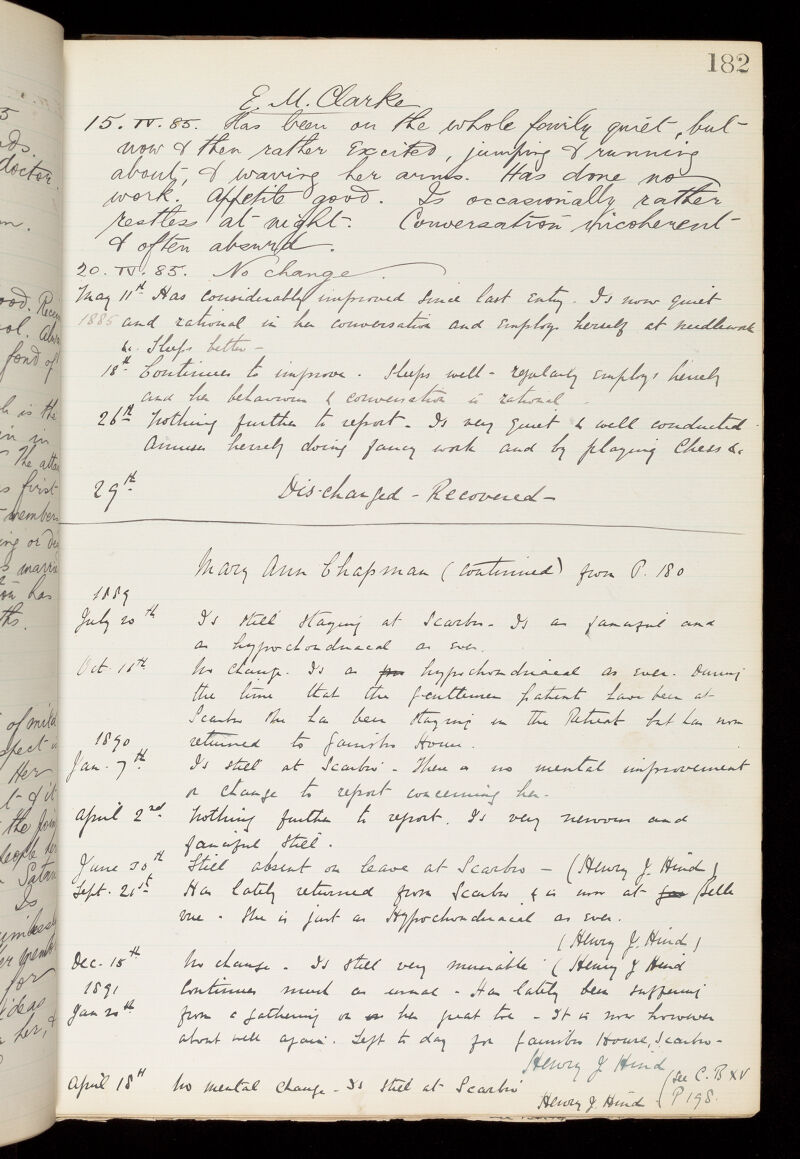 182
E. M. Clarke
15. IV. 85. Has been on the whole fairly quiet, but
now & then rather excited, jumping & running
about, & waving her arms. Has done no
work. Appetite good. Is occasionally rather
restless at night. Conversation incoherent
& often absurd.
20. IV. 85. No change.
May 11th Has considerably improved since last entry. Is now quiet
1885 and rational in her conversation and employs herself at needlework
&c. Sleeps better -
18th Continues to improve. Sleeps well - regularly employs herself
and her behaviour & conversation is rational
26th Nothing further to report. Is very quiet & well conducted
Amuses herself doing fancy work and by playing Chess &c
29th Discharged - Recovered -
Mary Ann Chapman (continued) from P. 180
1889
July 20th Is still staying at Scarbro. Is as fanciful and
as hypochondriacal as ever.
Oct 18th No change. Is as hypochondriacal as ever. During
the time that the gentlemen patients have been at
Scarbro she has been staying in the Retreat but has now
1890 returned to Gainsbro House.
Jan. 7th Is still at Scarbro. There is no mental improvement
or change to report concerning her.
April 2nd Nothing further to report. Is very nervous and
fanciful still.
June 30th Still absent on leave at Scarbro - (Henry J. Hind)
Sept. 21st Has lately returned from Scarbro & is now at Belle
vue. She is just as Hypochondriacal as ever.
(Henry J. Hind)
Dec. 18th No change. Is still very miserable (Henry J Hind
1891 Continues much as usual. Has lately been suffering
Jan 20th from a gathering on her great toe. It is now however
about well again. Left to day for Gainsbro House, Scarbro -
Henry J Hind
April 18th No mental change. Is still at Scarbro
Henry J. Hind (See C. B XV
P 198.
5
ds.
doctor.
m.
ood.
fond of
h is the
in
The
first
members
ing or
has
ths.
of
Her
t & it
the
people
Satan
Is
for
ideas
her, &